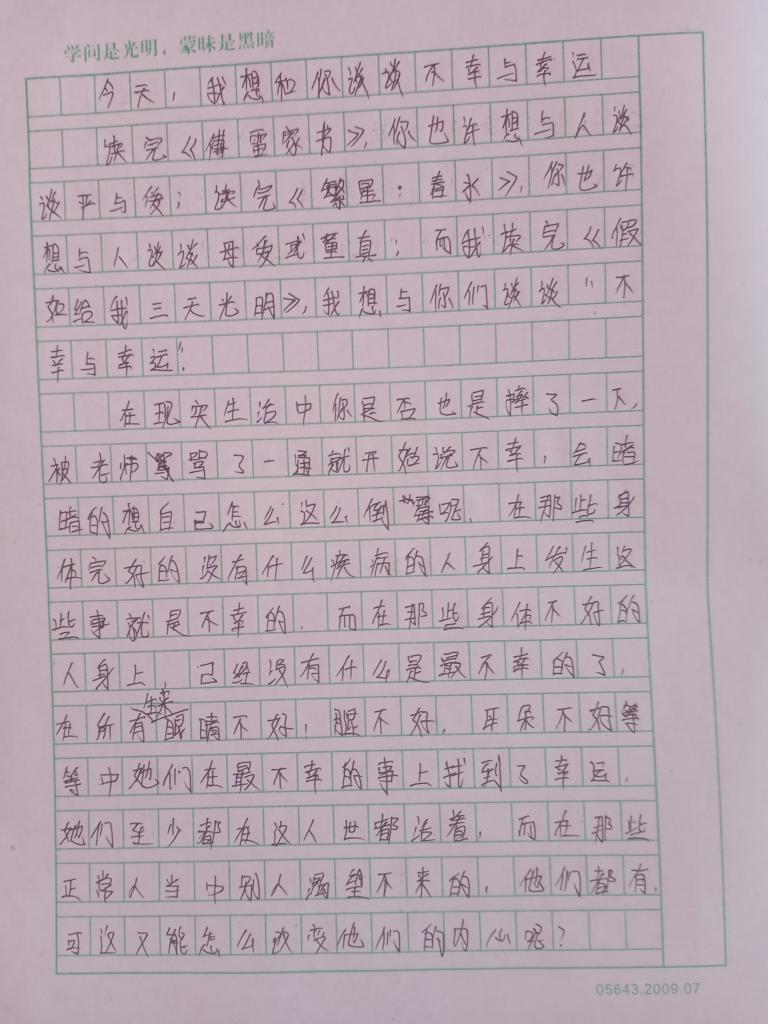 学问是光明，蒙昧是黑暗
今天，我想和你谈谈不幸与幸运
读完《傅雷家书》，你也许想与人谈
谈严与爱；读完《繁星·春水》，你也许
想与人谈谈母爱或童真；而我读完《假
如给我三天光明》，我想与你们谈谈“不
幸与幸运”。
在现实生活中你是否也是摔了一下，
被老师骂了一通就开始说不幸，会暗
暗的想自己怎么这么倒霉呢．在那些身
体完好的没有什么疾病的人身上发生这
些事就是不幸的．而在那些身体不好的
人身上，已经没有什么是最不幸的了，
在所有生来眼睛不好，腿不好，耳朵不好等
等中她们在最不幸的事上找到了幸运．
她们至少都在这人世都活着，而在那些
正常人当中别人渴望不来的，他们都有．
可这又能怎么改变他们的内心呢？
05643.2009.07